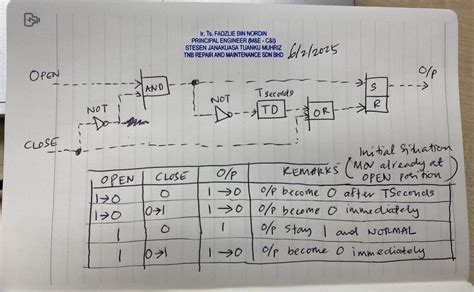 Ir. Ts. FADZLIE BIN NORDIN
PRINCIPAL ENGINEER (M&E - C&I)
STESEN JANAKUASA TUANKU MUHRIZ
TNB REPAIR AND MAINTENANCE SDN BHD
6/2/2025
OPEN
O/P
AND
S
R
NOT
NOT
Tseconds
TD
OR
CLOSE
Initial Situation
MOV already at
OPEN position
OPEN CLOSE O/P REMARKS
1→0 0 1→0 O/P become 0 after TSeconds
1→0 0→1 1→0 O/P become 0 immediately
1 0 1 O/P stay 1 and NORMAL
1 0→1 1→0 O/P become 0 immediately